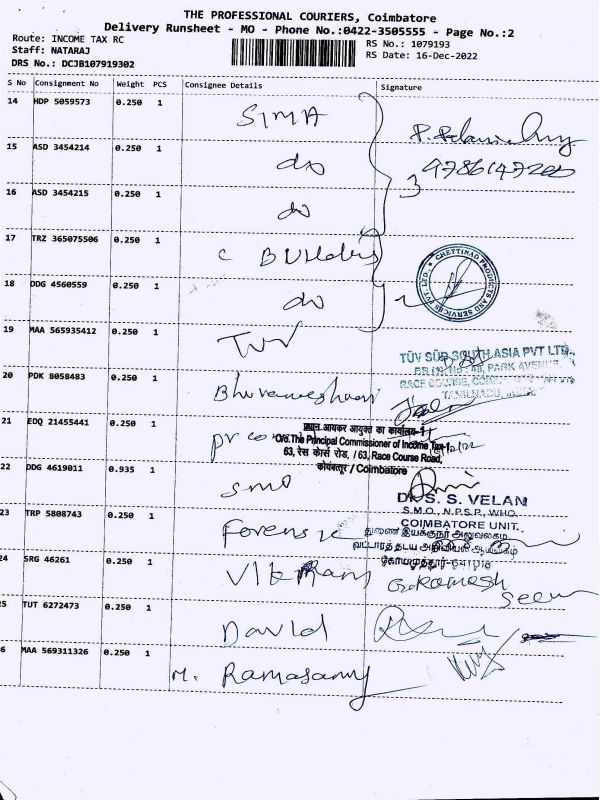 THE PROFESSIONAL COURIERS, Coimbatore
Delivery Runsheet - MO - Phone No.:0422-3505555 - Page No.:2
Route: INCOME TAX RC
RS No.: 1079193
Staff: NATARAJ
RS Date: 16-Dec-2022
DRS No.: DCJB107919302
S No Consignment No Weight PCS Consignee Details Signature
14 HDP 5059573 0.250 1 SIMA
15 ASD 3454214 0.250 1 do
16 ASD 3454215 0.250 1 do
3
17 TRZ 365075506 0.250 1 C BUilders
CHETTINAD PRODUCTS AND SERVICES PVT. LTD.,
18 DDG 4560559 0.250 1 do
19 MAA 565935412 0.250 1 TUV
TÜV SÜD SOUTH ASIA PVT LTD.,
PARK AVENUE
RACE COURSE,
TAMILNADU,
20 PDK 8058483 0.250 1
21 EDQ 21455441 0.250 1
प्रधान आयकर आयुक्त का कार्यालय-1
O/o.The Principal Commissioner of Income Tax-1
63, रेस कोर्स रोड, / 63, Race Course Road,
कोयंबत्तूर / Coimbatore
22 DDG 4619011 0.935 1 SMO
Dr. S. S. VELAN
S.M.O., N.P.S.P., WHO,
COIMBATORE UNIT.
23 TRP 5808743 0.250 1 Forensic
துணை இயக்குநர் அலுவலகம்
வட்டாரத் தடய அறிவியல் ஆய்வகம்
கோயமுத்தூர்-641018
24 SRG 46261 0.250 1
G. Ramesh
25 TUT 6272473 0.250 1 David
26 MAA 569311326 0.250 1 M. Ramasamy